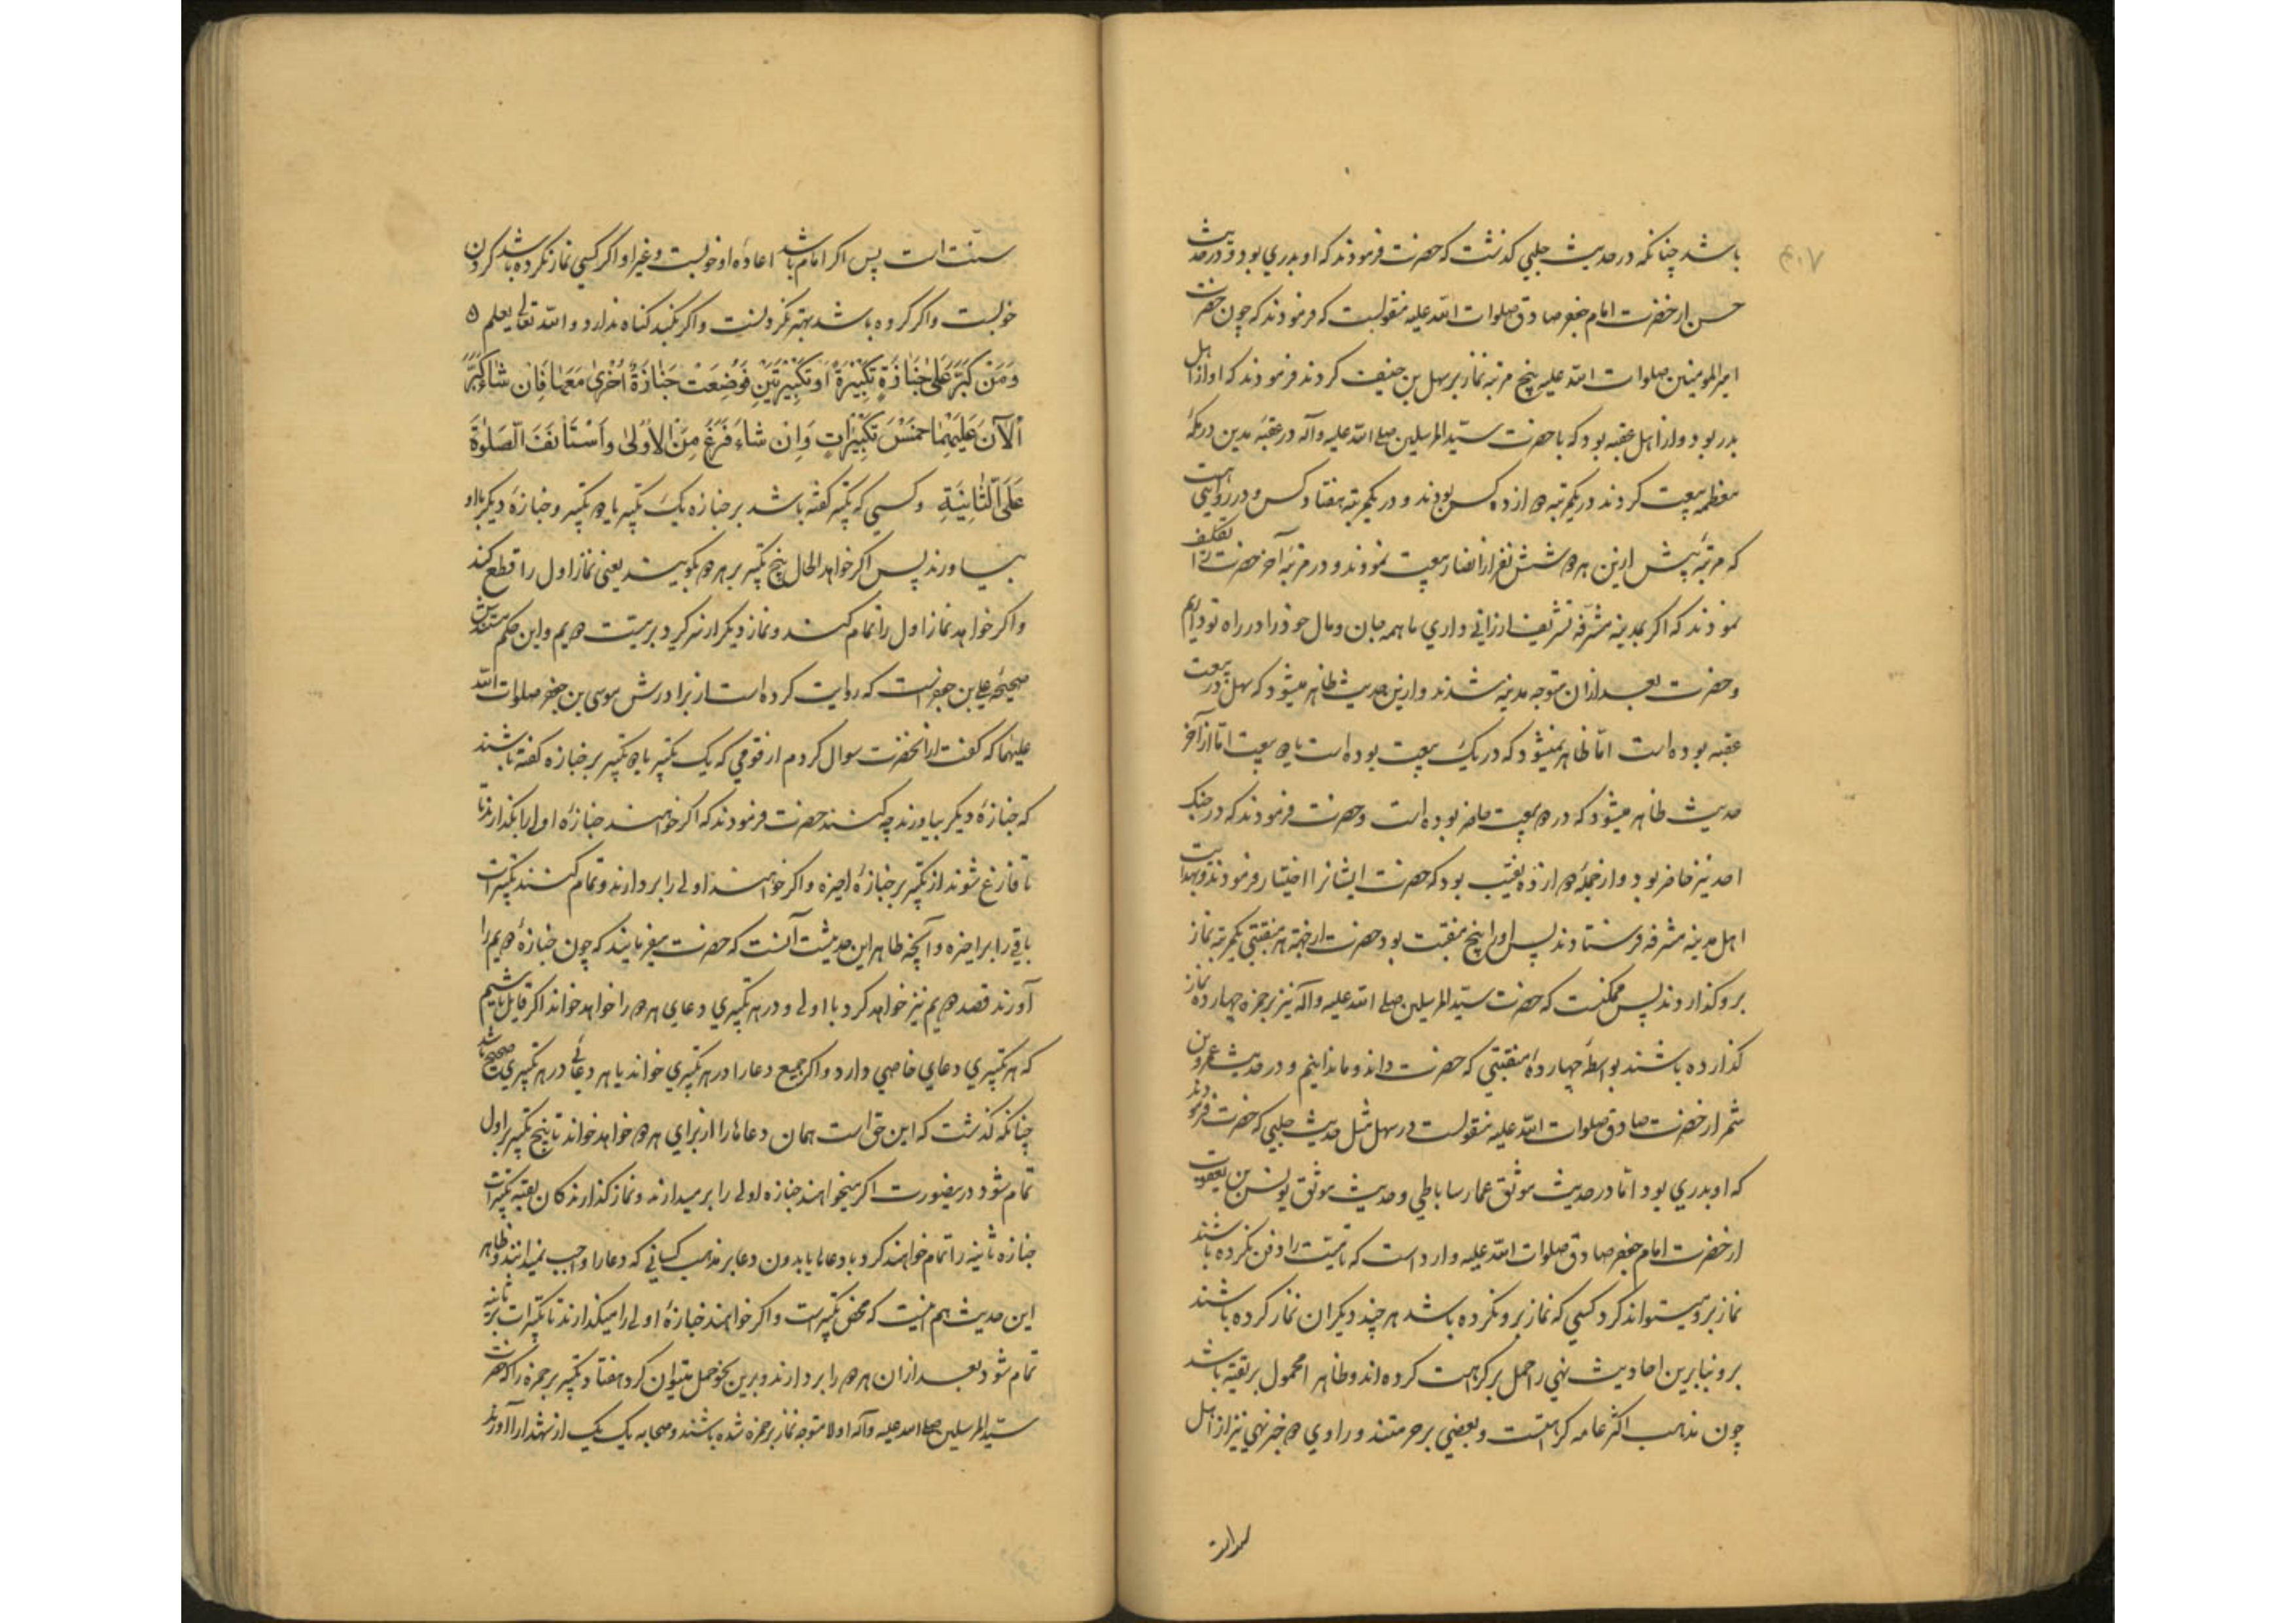 باشد چنانکه در حدیث حلبی کذشت که حضرت فرمودند که او بدری بود و در حدیث
حسن از حضرت امام جعفر صادق صلوات الله علیه منقولست که فرمودند که چون حضرت
امیر المومنین صلوات الله علیه پنج مرتبه نماز بر سهل بن حنیف کردند فرمودند که او از اهل
بدر بود و از اهل عقبه بود که با حضرت سید المرسلین صلی الله علیه وآله در عقبه مدین در مکه
معظمه بیعت کردند در یکمرتبه دوازده کس بودند و در یکمرتبه هفتاد کس و در روایتی هست
که مرتبه پیش ازین هر دو شش نفر از انصار بیعت نمودند و در مرتبه آخر حضرت را تکلیف
نمودند که اکر بمدینه مشرفه تشریف ارزانی داری ما همه جان و مال خود را در راه تو داریم
و حضرت بعد از ان متوجه مدینه شدند و ازین حدیث ظاهر میشود که سهل در بیعت
عقبه بوده است اما ظاهر نمیشود که در یک بیعت بوده است یا دو بیعت اما از آخر
حدیث ظاهر میشود که در دو بیعت حاضر بوده است و حضرت فرمودند که در جنک
احد نیز حاضر بود و از جمله دوازده نقیب بود که حضرت ایشانرا اختیار فرمودند و بهدایت
اهل مدینه مشرفه فرستادند پس او را پنج منقبت بود حضرت از جهة هر منقبتی یکمرتبه نماز
برو کذاردند پس ممکنست که حضرت سید المرسلین صلی الله علیه وآله نیز بر حمزه چهارده نماز
کذارده باشند بواسطه چهارده منقبتی که حضرت داند و ما ندانیم و در حدیث عمرو بن
شمر از حضرت صادق صلوات الله علیه منقولست در سهل مثل حدیث حلبی که حضرت فرمودند
که او بدری بود اما در حدیث موثق عمار ساباطی و حدیث موثق یونس بن یعقوب
از حضرت امام جعفر صادق صلوات الله علیه وارد است که تا میت را دفن نکرده باشند
نماز برو میتواند کرد کسی که نماز برو نکرده باشد هر چند دیکران نماز کرده باشند
برو بنابرین احادیث نهی را حمل بر کراهت کرده اند و ظاهرا محمول بر تقیه باشد
چون مذهب اکثر عامه کراهتست و بعضی بر حرمتند و راوی دو خبر نهی نیز از اهل
سنت است پس اکر امام باشد اعاده او خوبست و غیر او اکر کسی نماز نکرده باشد کردن
خوبست و اکر کرده باشد بهتر نکردنست و اکر بکند کناه ندارد و الله تعالی یعلم
وَمَنْ كَبَّرَ عَلَىٰ جَنَازَةٍ تَكْبِيرَةً اَوْ تَكْبِيرَتَيْنِ فَوُضِعَتْ جَنَازَةٌ اُخْرىٰ مَعَهَا فَاِنْ شَاءَ كَبَّرَ
اَلْآنَ عَلَيْهِمَا خَمْسَ تَكْبِيرَاتٍ وَاِنْ شَاءَ فَرَغَ مِنَ الْاُولىٰ وَاَسْتَأنَفَ الصَّلٰوةَ
عَلَى الثَّانِيَةِ و کسی که تکبیر کفته باشد بر جنازه یک تکبیر یا دو تکبیر و جنازه دیکر با او
بیاورند پس اکر خواهد الحال پنج تکبیر بر هر دو بکویند یعنی نماز اول را قطع کند
و اکر خواهد نماز اول را تمام کند و نماز دیکر از سر کیرد بر میت دویم و این حکم مستندش
صحیحه علی بن جعفر است که روایت کرده است از برادرش موسی بن جعفر صلوات الله
علیهما که کفت از آنحضرت سوال کردم از قومی که یک تکبیر یا دو تکبیر بر جنازه کفته باشند
که جنازه دیکر بیاورند چه کنند حضرت فرمودند که اکر خواهند جنازه اولی را بکذارند تا
تا فارغ شوند از تکبیر بر جنازه اخیره و اکر خواهند اولی را بردارند و تمام کنند تکبیرات
باقی را بر اخیره و آنچه ظاهر این حدیثست آنست که حضرت میفرمایند که چون جنازه دویم را
آورند قصد دویم نیز خواهد کرد با اولی و در هر تکبیری دعای هر دو را خواهد خواند اکر قایل باشیم
که هر تکبیری دعای خاصی دارد و اکر جمیع دعا را در هر تکبیری خواند یا هر دعائی در هر تکبیری صحیح باشد
چنانکه کذشت که این حق است همان دعاها را از برای هر دو خواهد خواند تا پنج تکبیر بر اول
تمام شود درینصورت اکر میخواهند جنازه اولی را بر میدارند و نماز کذارندکان بقیه تکبیرات
جنازه ثانیه را تمام خواهند کرد با دعا یا بدون دعا بر مذهب کسانی که دعا را واجب نمیدانند و ظاهر
این حدیث هم اینست که محض تکبیر است و اکر خواهند جنازه اولی را میکذارند تا تکبیرات بر ثانیه
تمام شود و بعد از ان هر دو را بردارند و برین نحو حمل میتوان کرد هفتاد تکبیر بر حمزه را که حضرت
سید المرسلین صلی الله علیه وآله اولا متوجه نماز بر حمزه شده باشند و صحابه یک یک از شهدا را آورند